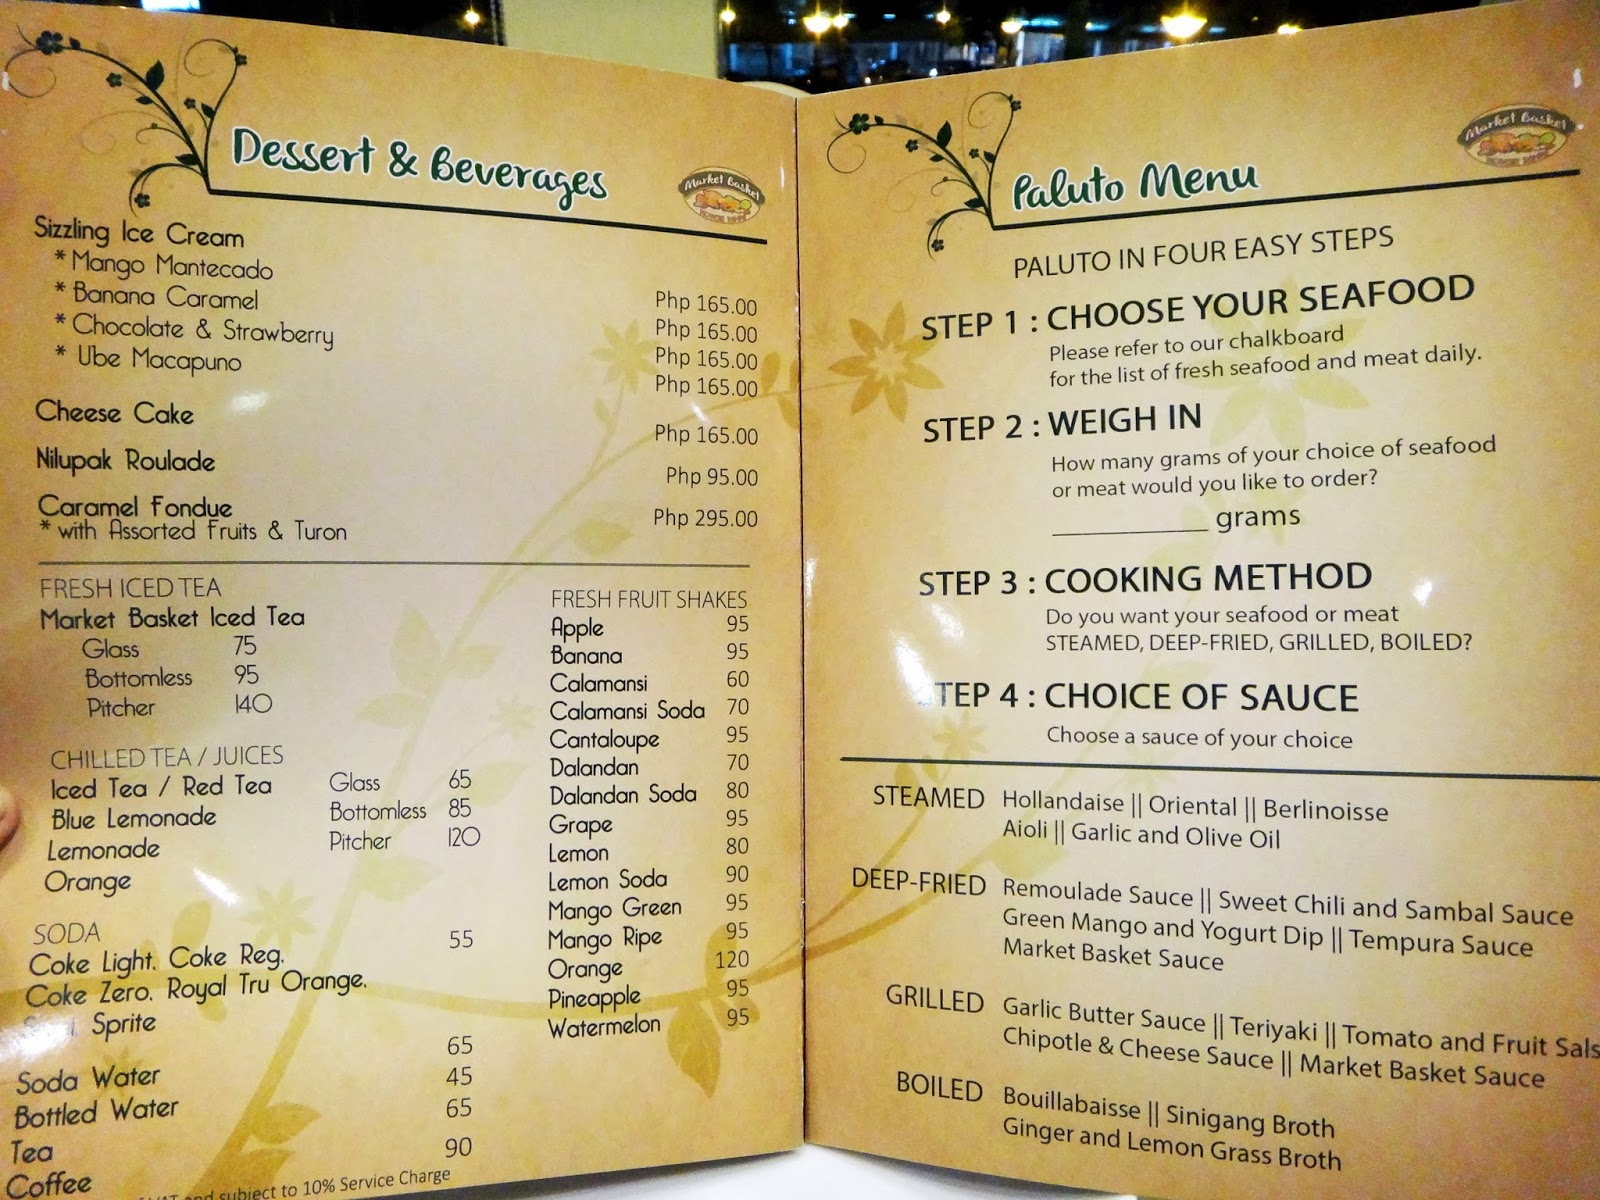 Dessert & Beverages
Market Basket
Sizzling Ice Cream
* Mango Mantecado Php 165.00
* Banana Caramel Php 165.00
* Chocolate & Strawberry Php 165.00
* Ube Macapuno Php 165.00
Cheese Cake Php 165.00
Nilupak Roulade Php 95.00
Caramel Fondue Php 295.00
* with Assorted Fruits & Turon
FRESH ICED TEA
Market Basket Iced Tea
Glass 75
Bottomless 95
Pitcher 140
CHILLED TEA / JUICES
Iced Tea / Red Tea Glass 65
Blue Lemonade Bottomless 85
Lemonade Pitcher 120
Orange
SODA 55
Coke Light, Coke Reg.
Coke Zero, Royal Tru Orange,
Sprite
Soda Water 65
Bottled Water 45
Tea 65
Coffee 90
and subject to 10% Service Charge
FRESH FRUIT SHAKES
Apple 95
Banana 95
Calamansi 60
Calamansi Soda 70
Cantaloupe 95
Dalandan 70
Dalandan Soda 80
Grape 95
Lemon 80
Lemon Soda 90
Mango Green 95
Mango Ripe 95
Orange 120
Pineapple 95
Watermelon 95
Paluto Menu
Market Basket
PALUTO IN FOUR EASY STEPS
STEP 1 : CHOOSE YOUR SEAFOOD
Please refer to our chalkboard
for the list of fresh seafood and meat daily.
STEP 2 : WEIGH IN
How many grams of your choice of seafood
or meat would you like to order?
____________ grams
STEP 3 : COOKING METHOD
Do you want your seafood or meat
STEAMED, DEEP-FRIED, GRILLED, BOILED?
STEP 4 : CHOICE OF SAUCE
Choose a sauce of your choice
STEAMED Hollandaise || Oriental || Berlinoisse
Aioli || Garlic and Olive Oil
DEEP-FRIED Remoulade Sauce || Sweet Chili and Sambal Sauce
Green Mango and Yogurt Dip || Tempura Sauce
Market Basket Sauce
GRILLED Garlic Butter Sauce || Teriyaki || Tomato and Fruit Sals
Chipotle & Cheese Sauce || Market Basket Sauce
BOILED Bouillabaisse || Sinigang Broth
Ginger and Lemon Grass Broth